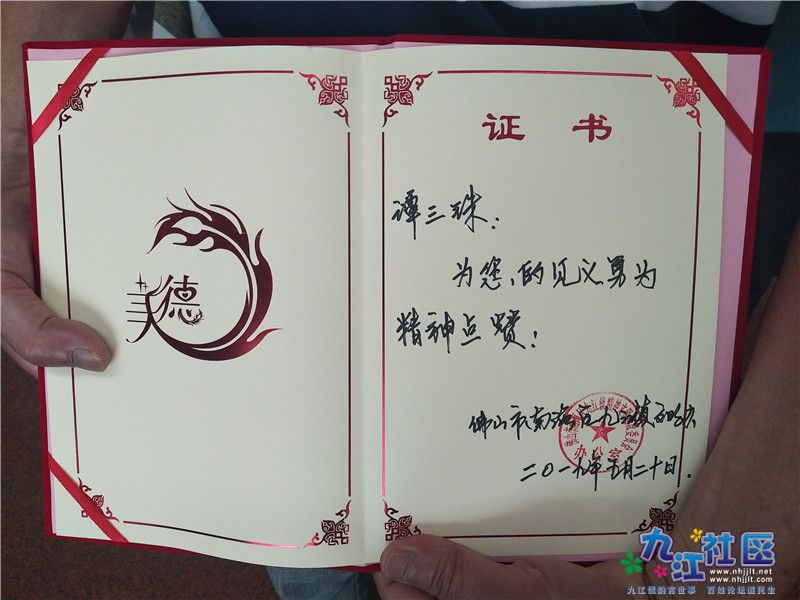 美德
证书
谭三珠:
为您的见义勇为
精神点赞!
佛山市南海区九江镇文明办
办公室
二〇一九年五月二十日.
九江社区
www.nhjjlt.net
www.nhjjlt.com
九江儒的言世事 百姓论坛道民生